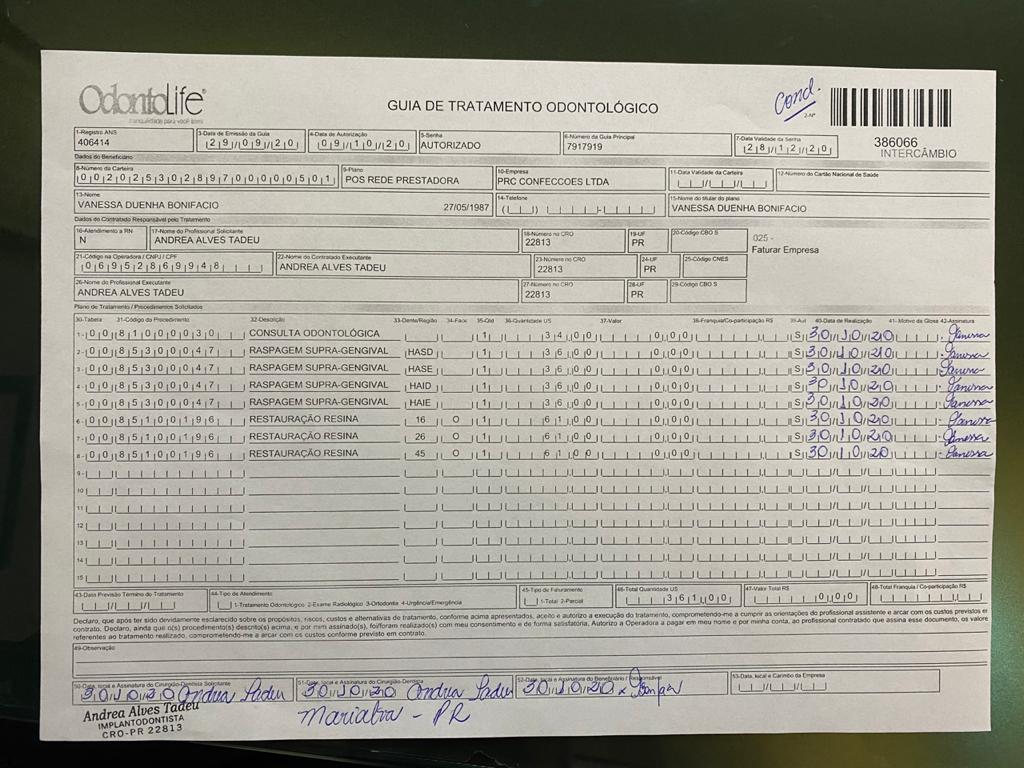 OdontoLife
tranquilidade para você sorrir
GUIA DE TRATAMENTO ODONTOLÓGICO
Cond.
2-Nº
386066
INTERCÂMBIO
1-Registro ANS 3-Data de Emissão da Guia 4-Data de Autorização 5-Senha 6-Número da Guia Principal 7-Data Validade da Senha
406414 29/09/20 09/10/20 AUTORIZADO 7917919 28/12/20
Dados do Beneficiário
8-Número da Carteira 9-Plano 10-Empresa 11-Data Validade da Carteira 12-Número do Cartão Nacional de Saúde
00202530289700000501 POS REDE PRESTADORA PRC CONFECCOES LTDA
13-Nome 14-Telefone 15-Nome do titular do plano
VANESSA DUENHA BONIFACIO 27/05/1987 VANESSA DUENHA BONIFACIO
Dados do Contratado Responsável pelo Tratamento
16-Atendimento a RN 17-Nome do Profissional Solicitante 18-Número no CRO 19-UF 20-Código CBO S
N ANDREA ALVES TADEU 22813 PR
025 -
Faturar Empresa
21-Código na Operadora / CNPJ / CPF 22-Nome do Contratado Executante 23-Número no CRO 24-UF 25-Código CNES
06952869948 ANDREA ALVES TADEU 22813 PR
26-Nome do Profissional Executante 27-Número no CRO 28-UF 29-Código CBO S
ANDREA ALVES TADEU 22813 PR
Plano de Tratamento / Procedimentos Solicitados
30-Tabela 31-Código do Procedimento 32-Descrição 33-Dente/Região 34-Face 35-Qtd 36-Quantidade US 37-Valor 38-Franquia/Co-participação R$ 39-Aut 40-Data de Realização 41-Motivo da Glosa 42-Assinatura
1- 00 81000030 CONSULTA ODONTOLÓGICA 1 34,00 0,00 S 30/10/20 Vanessa
2- 00 85300047 RASPAGEM SUPRA-GENGIVAL HASD 1 36,00 0,00 S 30/10/20 Vanessa
3- 00 85300047 RASPAGEM SUPRA-GENGIVAL HASE 1 36,00 0,00 S 30/10/20 Vanessa
4- 00 85300047 RASPAGEM SUPRA-GENGIVAL HAID 1 36,00 0,00 S 30/10/20 Vanessa
5- 00 85300047 RASPAGEM SUPRA-GENGIVAL HAIE 1 36,00 0,00 S 30/10/20 Vanessa
6- 00 85100196 RESTAURAÇÃO RESINA 16 O 1 61,00 0,00 S 30/10/20 Vanessa
7- 00 85100196 RESTAURAÇÃO RESINA 26 O 1 61,00 0,00 S 30/10/20 Vanessa
8- 00 85100196 RESTAURAÇÃO RESINA 45 O 1 61,00 0,00 S 30/10/20 Vanessa
9-
10-
11-
12-
13-
14-
15-
43-Data Previsão Término do Tratamento 44-Tipo de Atendimento 45-Tipo de Faturamento 46-Total Quantidade US 47-Valor Total R$ 48-Total Franquia / Co-participação R$
1-Tratamento Odontológico 2-Exame Radiológico 3-Ortodontia 4-Urgência/Emergência 1-Total 2-Parcial 361,00 0,00
Declaro, que após ter sido devidamente esclarecido sobre os propósitos, riscos, custos e alternativas de tratamento, conforme acima apresentados, aceito e autorizo a execução do tratamento, comprometendo-me a cumprir as orientações do profissional assistente e arcar com os custos previstos em
contrato. Declaro, ainda que o(s) procedimento(s) descrito(s) acima, e por mim assinado(s), foi/foram realizado(s) com meu consentimento e de forma satisfatória. Autorizo a Operadora a pagar em meu nome e por minha conta, ao profissional contratado que assina esse documento, os valore
referentes ao tratamento realizado, comprometendo-me a arcar com os custos conforme previsto em contrato.
49-Observação
50-Data, local e Assinatura do Cirurgião-Dentista Solicitante 51-Data, local e Assinatura do Cirurgião-Dentista 52-Data, local e Assinatura do Beneficiário / Responsável 53-Data, local e Carimbo da Empresa
30/10/20 Andrea Tadeu 30/10/20 Andrea Tadeu 30/10/20 x
Andrea Alves Tadeu
IMPLANTODONTISTA
CRO-PR 22813
Marialva - PR